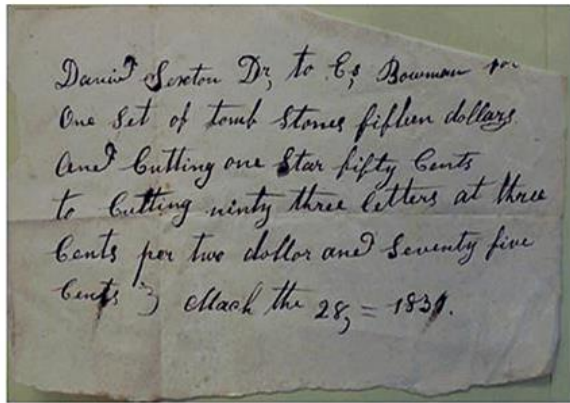 Daniel Sexton Dr, to Cs, Bowman for
One Set of tomb Stones fifteen dollars
And Cutting one Star fifty Cents
to Cutting ninty three letters at three
Cents per two dollor and Seventy five
Cents Mach the 28, = 1831.